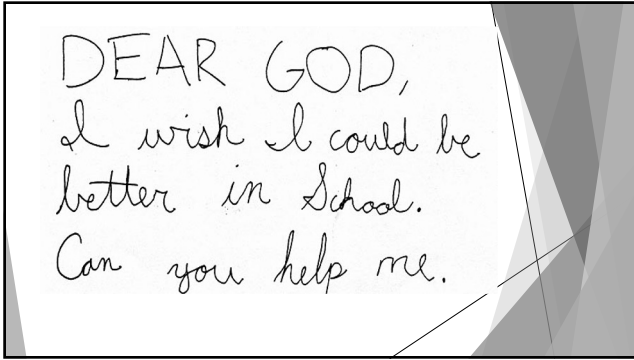 DEAR GOD,
I wish I could be
better in School.
Can you help me.